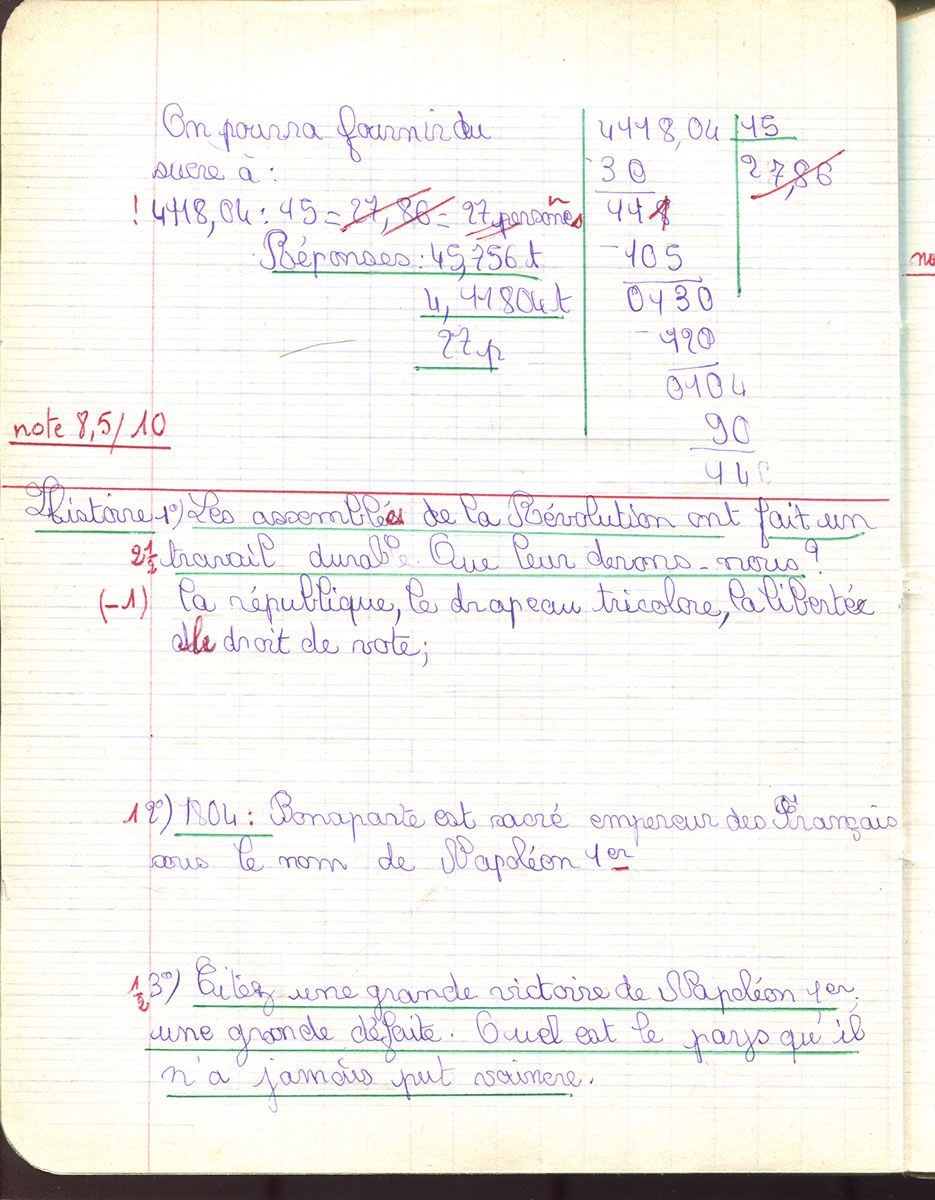 On pourra fournir du
sucre à :
! 4118,04 : 15 = 27,86 = 27 personnes
Réponses : 45,756 t
4,11804 t
27 p
4118,04 15
30 27,86
111
-105
0130
-120
0104
90
14
note 8,5/10
Histoire 1°) Les assemblées de la Révolution ont fait un
2 1/2 travail durable. Que leur devons-nous ?
(-1) la république, le drapeau tricolore, la liberté
le droit de vote ;
1 2°) 1804 : Bonaparte est sacré empereur des Français
sous le nom de Napoléon 1er
1/2 3°) Citez une grande victoire de Napoléon 1er,
une grande défaite. Quel est le pays qu'il
n'a jamais put vaincre.